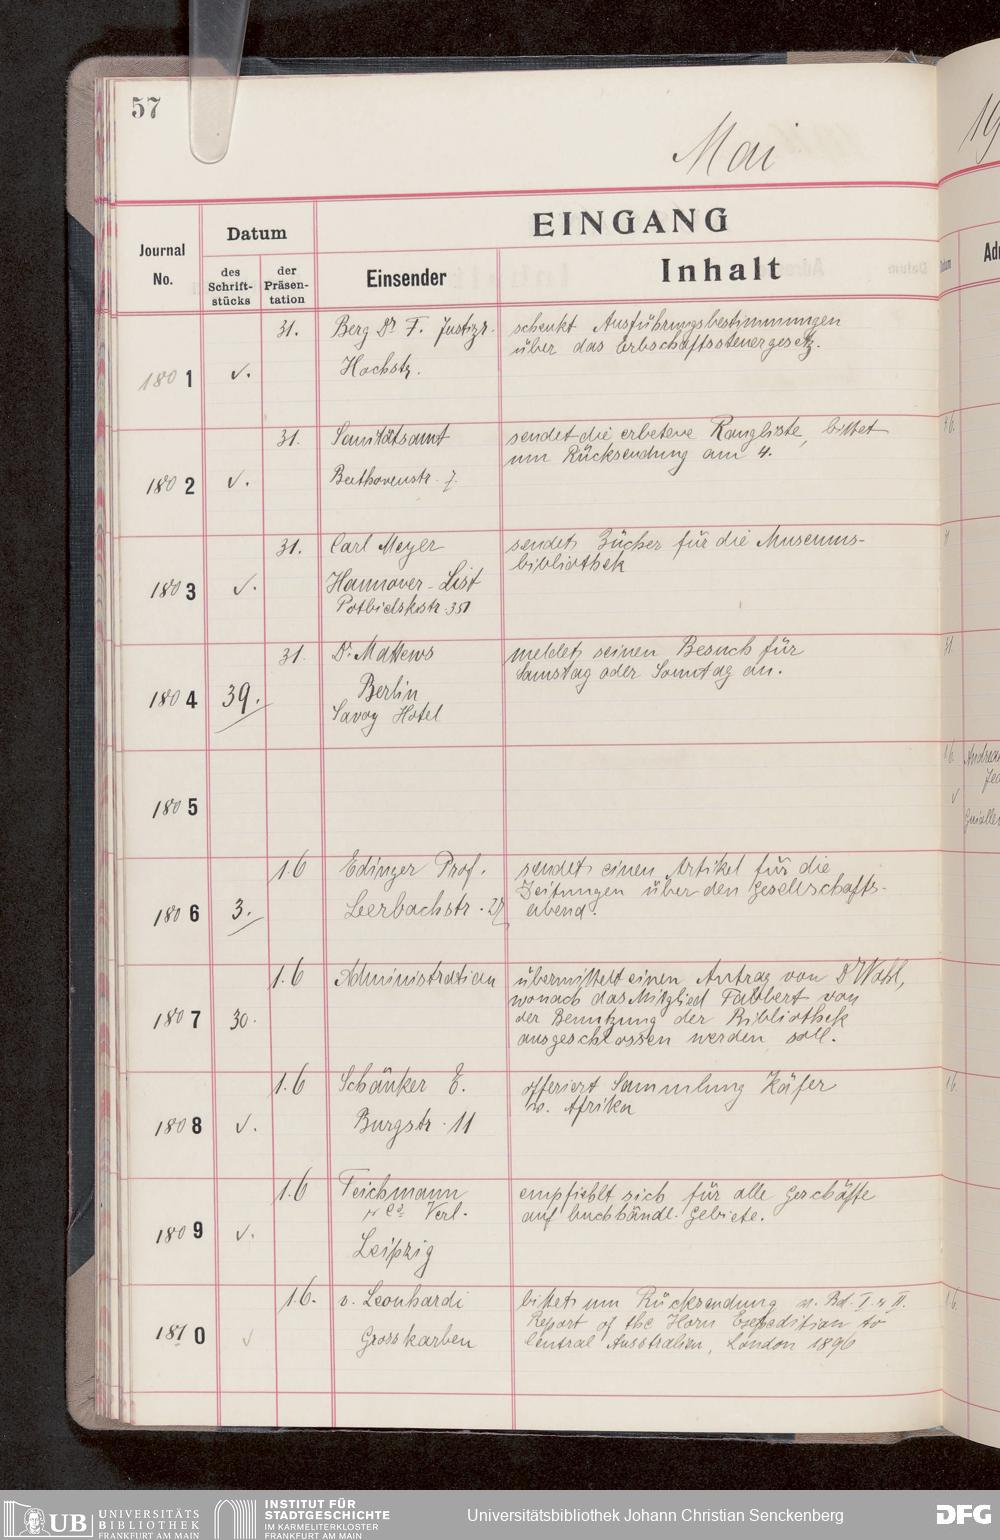 57
Mai
19
EINGANG
Journal
No.
Datum
des
Schrift-
stücks
der
Präsen-
tation
Einsender
Inhalt
Datum
Ad
31. Berg Dr F. Justizr. schenkt Ausführungsbestimmungen
über das Erbschaftssteuergesetz.
1801 v. Hochstr.
31. Sanitätsamt sendet die erbetene Rangliste, bittet
um Rücksendung am 4.
1802 v. Beethovenstr. 7.
31. Carl Meyer sendet Bücher für die Museums-
bibliothek
1803 v. Hannover-List
Potbielskistr. 351
31. Dr. Mattews meldet seinen Besuch für
Samstag oder Sonntag an.
1804 39. Berlin
Savoy Hotel
1805
1.6 Edinger Prof. sendet einen Artikel für die
Zeitungen über den Gesellschafts-
1806 3. Leerbachstr. 27 abend.
1.6 Administration übermittelt einen Antrag von Dr Wahl,
wonach das Mitglied Fabbert von
1807 30. der Benutzung der Bibliothek
ausgeschlossen werden soll.
1.6 Schänker E. offeriert Sammlung Käfer
w. Afrika
1808 v. Burgstr. 11
1.6 Teichmann empfiehlt sich für alle Geschäfte
& Co Verl. auf buchhändl. Gebiete.
1809 v. Leipzig
1.6. v. Leonhardi bittet um Rücksendung v. Bd. I u II.
Report of the Horn Expedition to
1810 v Grosskarben Central Australien, London 1896
UB
UNIVERSITÄTS
BIBLIOTHEK
FRANKFURT AM MAIN
INSTITUT FÜR
STADTGESCHICHTE
IM KARMELITERKLOSTER
FRANKFURT AM MAIN
Universitätsbibliothek Johann Christian Senckenberg
DFG